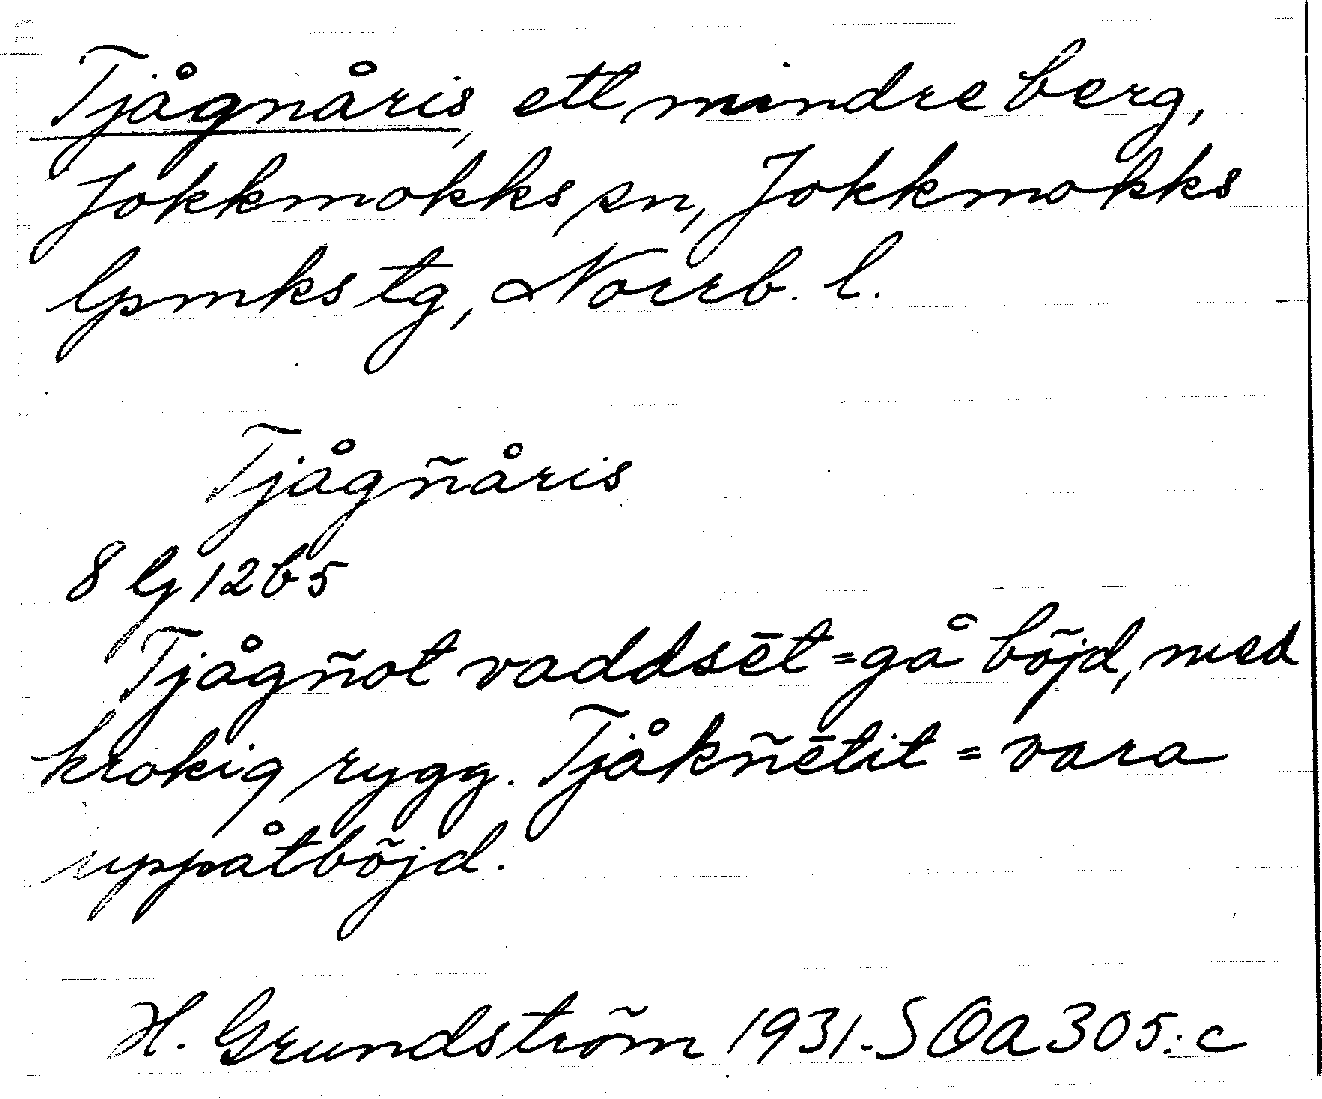 Tjågnåris, ett mindre berg,
Jokkmokks sn, Jokkmokks
lpmks tg, Norrb. l.
Tjågñåris
8 lj 12b5
Tjågñot vaddsēt = gå böjd, med
krokig rygg. Tjåkñētit = vara
uppåtböjd.
H. Grundström 1931. SOa 305:c